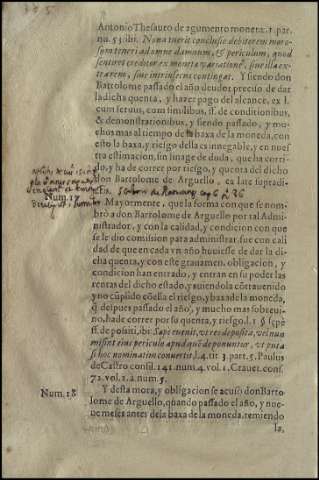 Antonio Thesauro de augumento monetæ. 1. par.
nu. 53. ibi. Nona tueris conclusio debitorem moro-
sum teneri ad omne damnum, & periculum, quod
sentiret creditor ex moneta variatione, siue illa ex-
trarem, siue intrinseces contingat. Y siendo don
Bartolome passado el año deudor preciso de dar
la dicha quenta, y hazer pago del alcance, ex l.
cum seruus, com similibus, ff. de conditionibus,
& demonstrationibus, y siendo passado, y mu-
chos mas al tiempo de la baxa de la moneda, con
esto la baxa, y riesgo della es innegable, y en nues-
tra estimacion, sin linage de duda, que ha corri-
do, y ha de correr por riesgo, y quenta del dicho
don Bartolome de Arguello, ex late supradi-
ctis.
Num. 17
Mayormente, que la forma con que se nom-
brò a don Bartolome de Arguello por tal Admi-
nistrador, y con la calidad, y condicion con que
se le dio comision para administrar, fue con cali-
dad de que en cada vn año huuiesse de dar la di-
cha quenta, y con este grauamen, obligacion, y
condicion han entrado, y entran en su poder las
rentas del dicho estado, y auiendola cõtrauenido
y no cũplido cõella el riesgo, y baxa de la moneda,
q̃ despues passado el año, y mucho mas sobreui-
no, ha de correr por su quenta, y riesgo. l. 1. § sæpè
ff. de positi, ibi: Sæpe euenit, vt res deposita, vel num
mi sint eius periculo apud quẽ deponuntur, vt puta
si hoc nominatim conuenit. l. 4. tit. 3. part. 5. Paulus
de Castro consil. 141. num. 4. vol. 1. Crauet. cons.
72. vol. 1. à num. 5.
Num. 18
Y desta mora, y obligacion se acusò don Barto-
lome de Arguello, quando passado el año, y nue-
ue meses antes de la baxa de la moneda, temiendo
la,